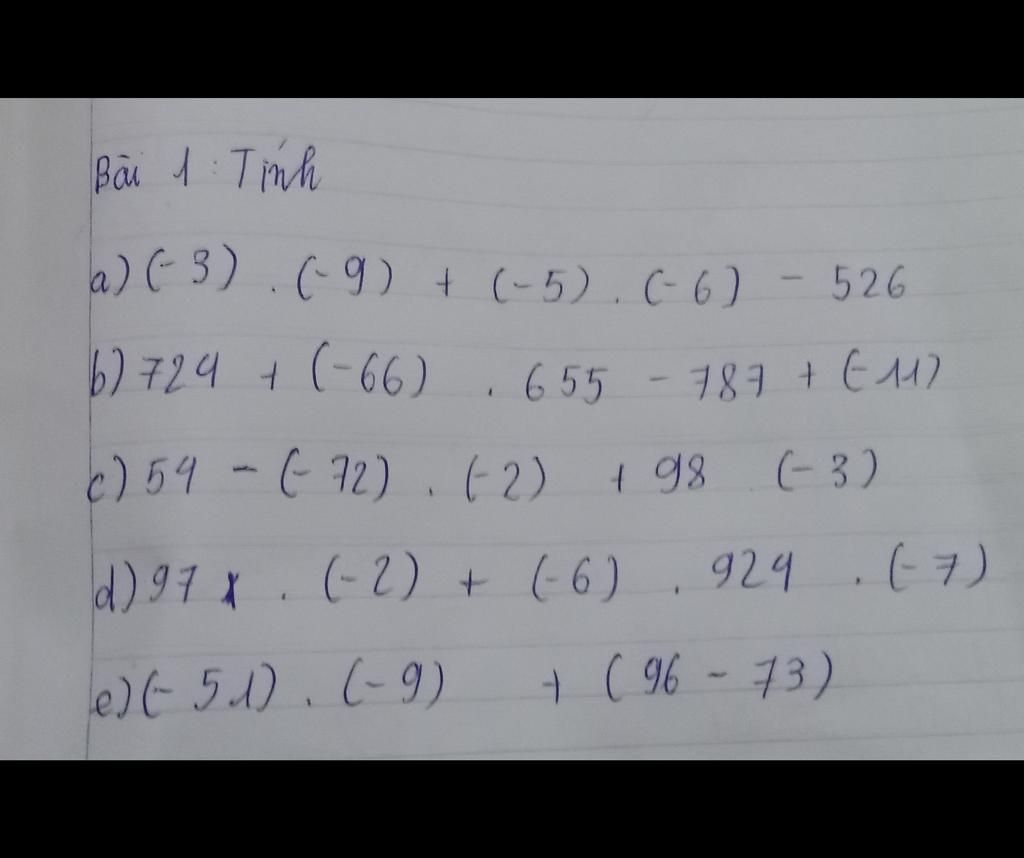 Bài 1: Tính
a) (-3) . (-9) + (-5) . (-6) - 526
b) 724 + (-66) . 655 - 787 + (-11)
c) 54 - (-72) . (-2) + 98 (-3)
d) 97 . (-2) + (-6) . 924 . (-7)
e) (-51) . (-9) + (96 - 73)